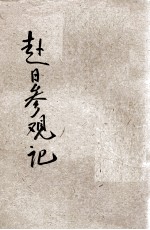 赴日参观记